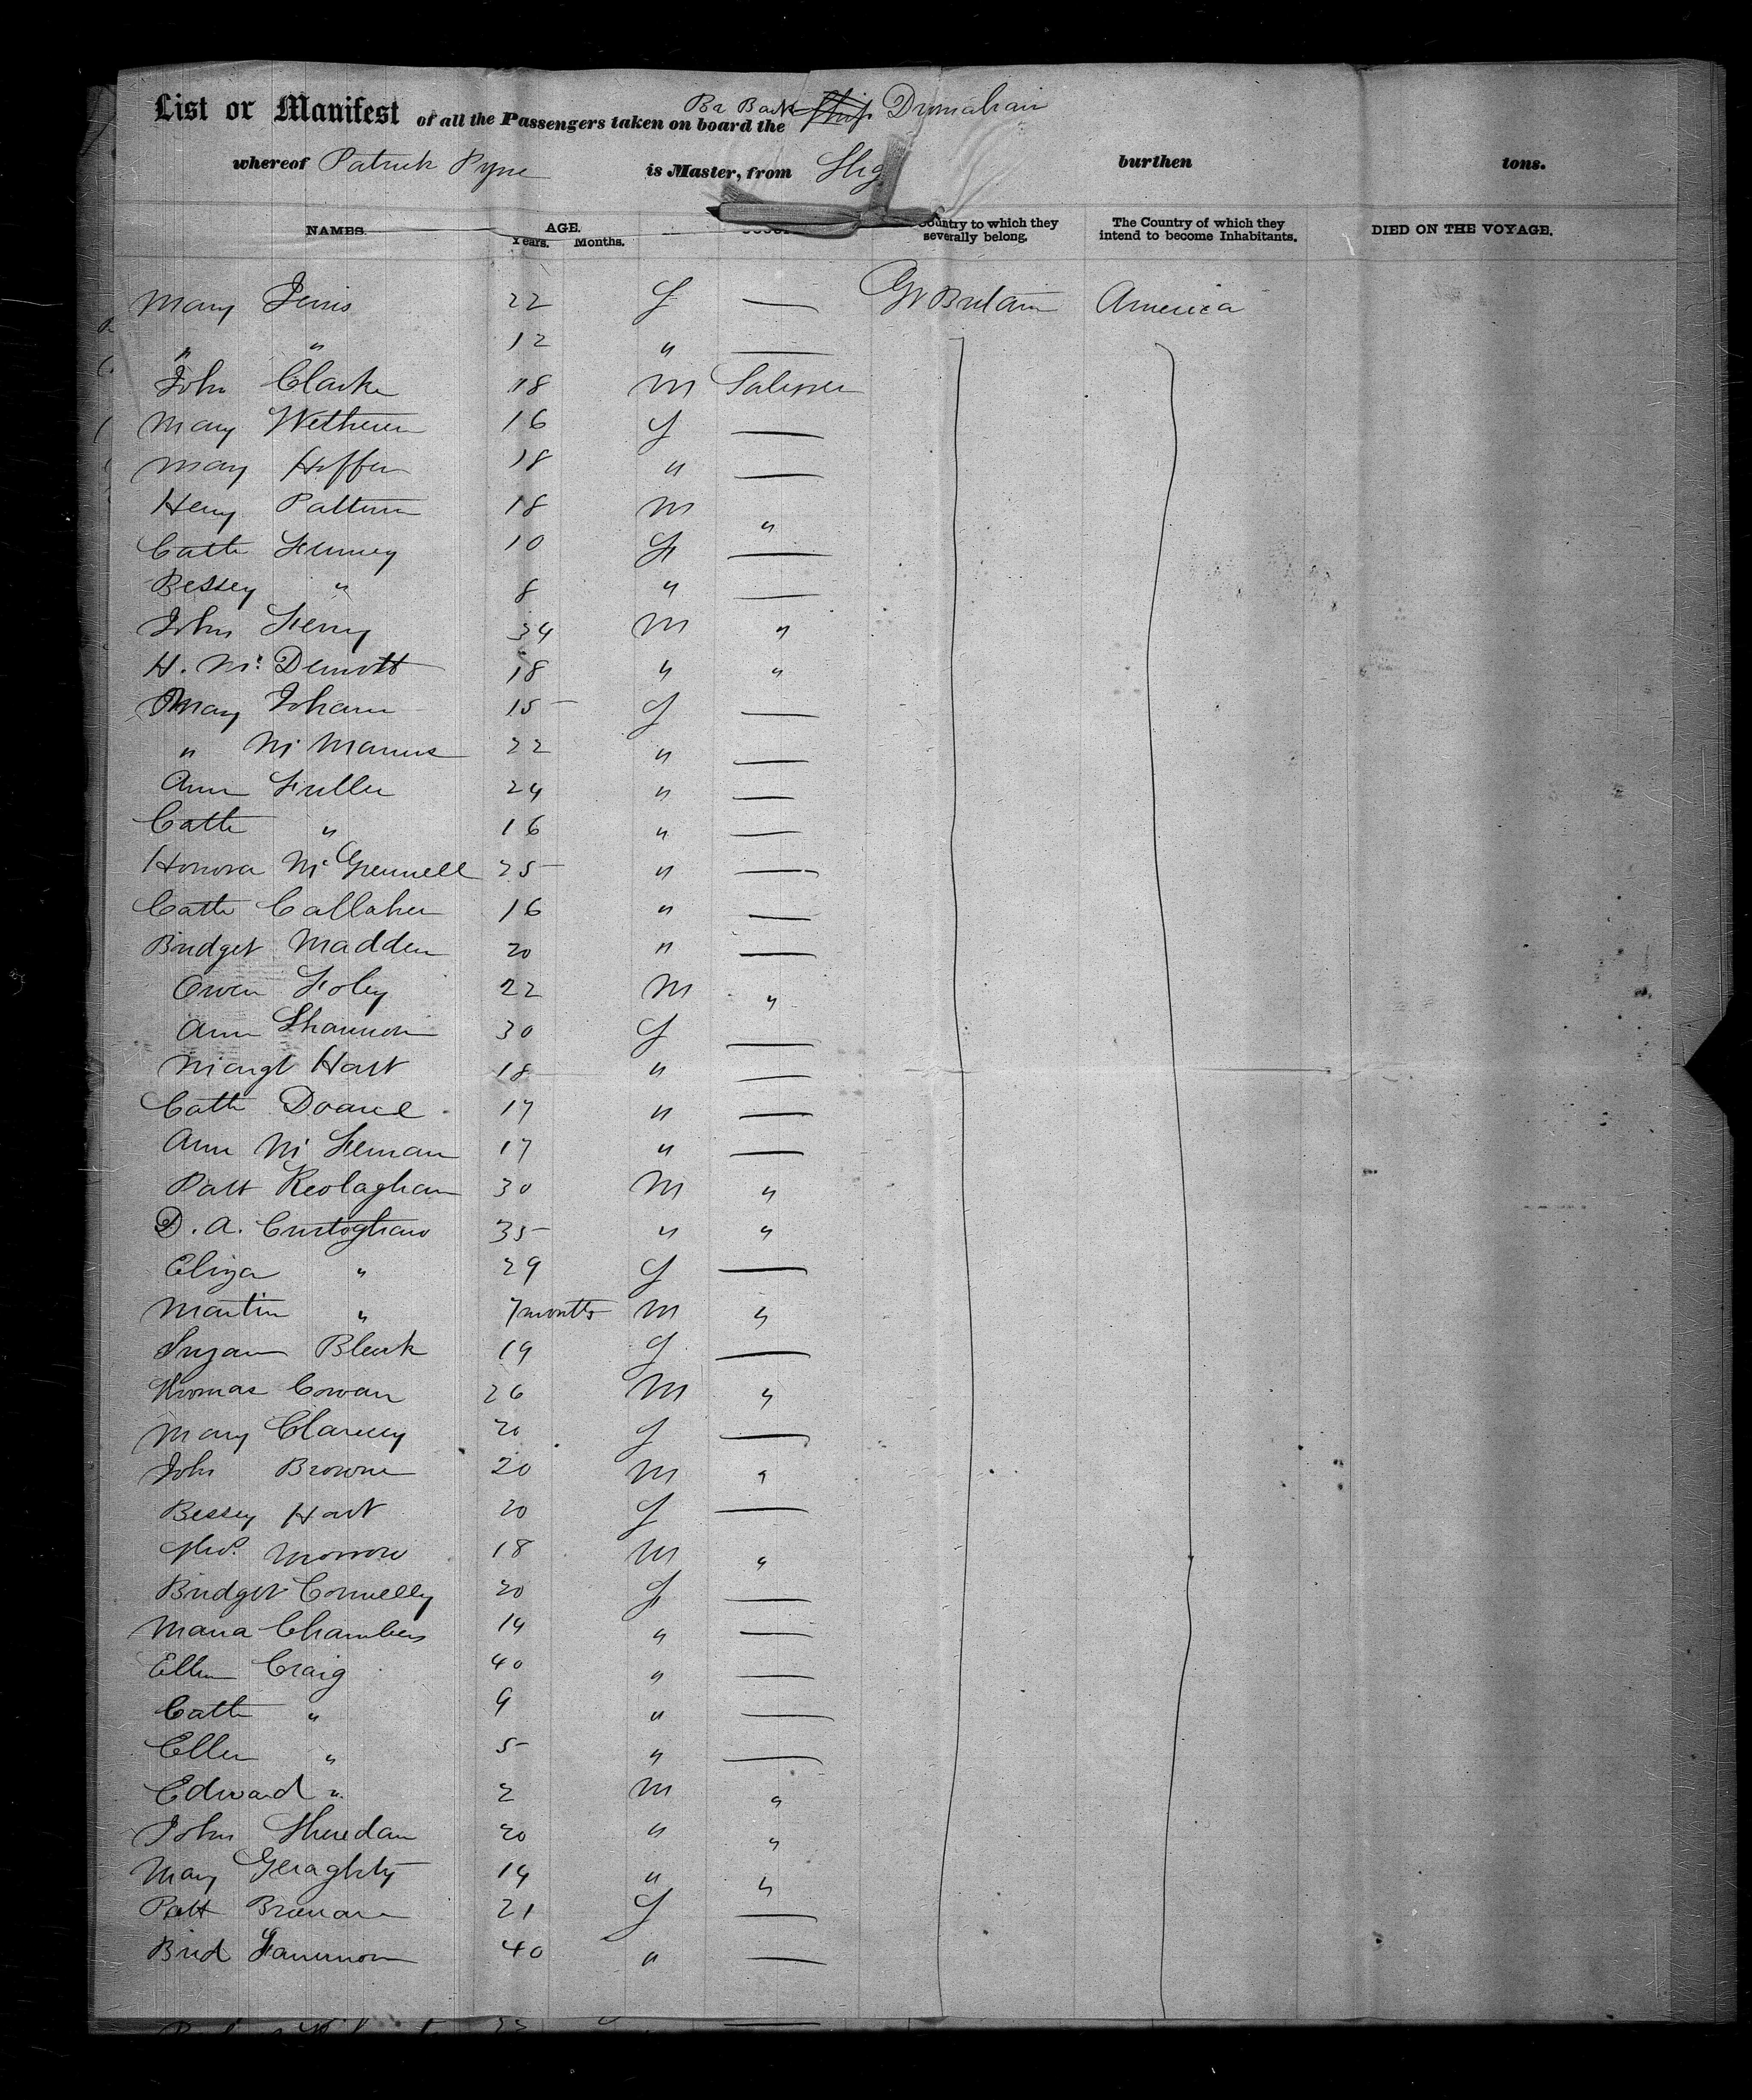 List or Manifest of all the Passengers taken on board the Br Bark Ship Drumahair
whereof Patrick Pyne is Master, from Slig burthen tons.
NAMES. AGE. Years. Months. Country to which they severally belong. The Country of which they intend to become Inhabitants. DIED ON THE VOYAGE.
Mary 22 f — Gt Britain America
" " 12 " —
John Clarke 18 m
Mary 16 f —
Mary 18 " —
Henry 18 m "
Cath 10 F —
Bessey " 8 " —
John 34 m "
H. Mc Dermott 18 " "
Mary 15 f —
" Mc Manus 22 " —
Ann Fuller 24 " —
Cath " 16 " —
Honora 25 " —
Cath Callaher 16 " —
Bridget Madden 20 " —
Owen Foley 22 m "
Ann Shannon 30 f —
Margt Hart 18 " —
Cath 17 " —
Ann 17 " —
Patt Keolaghan 30 m "
D. A. 35 " "
Eliza " 29 f —
Martin " 7 months m "
19 f —
Thomas Cowan 26 m "
Mary Clancey 20 f —
John Browne 20 m "
Bessey Hart 20 f —
Morrow 18 m "
Bridget Connelly 20 F —
Maria Chambers 14 " —
Ellen Craig 40 " —
Cath " 9 " —
Ellen " 5 " —
Edward " 2 m "
John Sheredan 20 " "
Mary Geraghty 14 " "
Patt 21 f —
Brid 40 " —